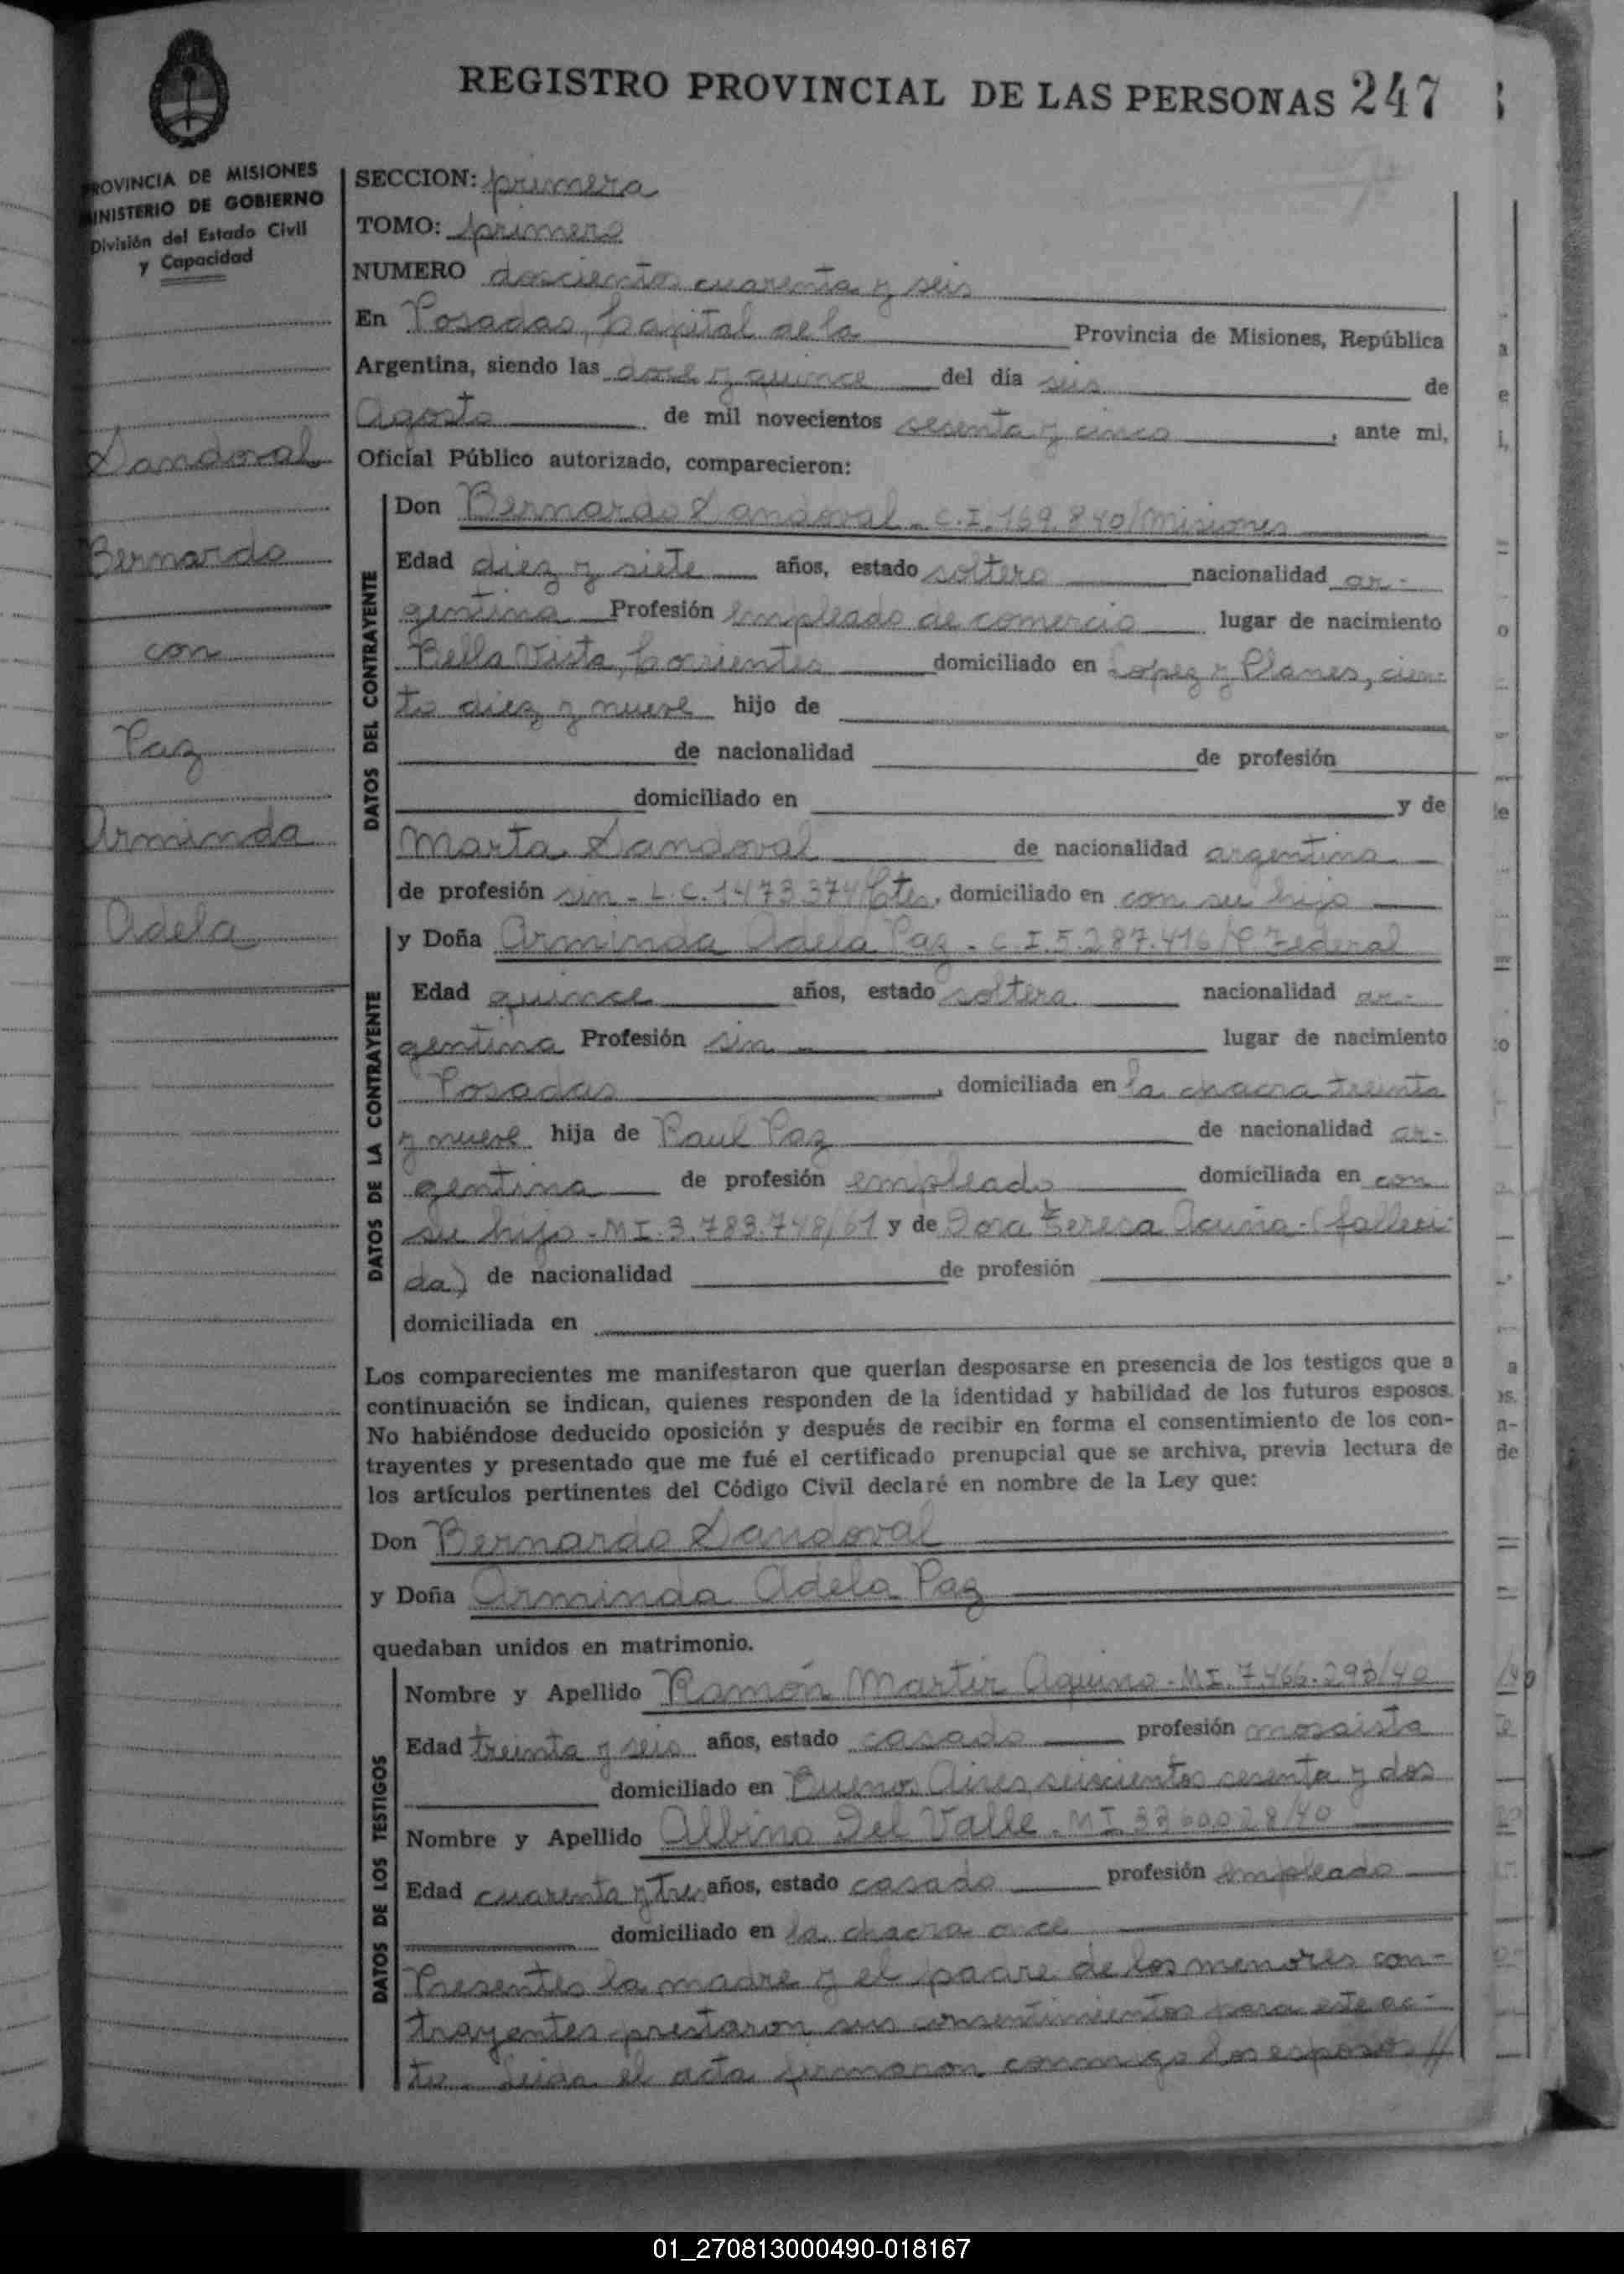 REGISTRO PROVINCIAL DE LAS PERSONAS 247
PROVINCIA DE MISIONES
MINISTERIO DE GOBIERNO
División del Estado Civil
y Capacidad
Sandoval
Bernardo
con
Paz
Arminda
Adela
SECCION: primera
TOMO: primero
NUMERO doscientos cuarenta y seis
En Posadas, Capital de la Provincia de Misiones, República
Argentina, siendo las doce y quince del día seis de
Agosto de mil novecientos sesenta y cinco, ante mi,
Oficial Público autorizado, comparecieron:
DATOS DEL CONTRAYENTE
Don Bernardo Sandoval - C.I. 169.840/Misiones
Edad diez y siete años, estado soltero nacionalidad ar-
gentina Profesión empleado de comercio lugar de nacimiento
Bella Vista, Corrientes domiciliado en Lopez y Planes, cien-
to diez y nueve hijo de
de nacionalidad de profesión
domiciliado en y de
Marta Sandoval de nacionalidad argentina
de profesión sin - L.C. 1473374/Ctes, domiciliado en con su hijo
DATOS DE LA CONTRAYENTE
y Doña Arminda Adela Paz - C.I. 5.287.416/P. Federal
Edad quince años, estado soltera nacionalidad ar-
gentina Profesión sin lugar de nacimiento
Posadas, domiciliada en la chacra treinta
y nueve hija de Raul Paz de nacionalidad ar-
gentina de profesión empleado domiciliada en con
su hijo - MI. 3.783.748/61 y de Dora Teresa Acuña - (falleci-
da) de nacionalidad de profesión
domiciliada en
Los comparecientes me manifestaron que querían desposarse en presencia de los testigos que a
continuación se indican, quienes responden de la identidad y habilidad de los futuros esposos.
No habiéndose deducido oposición y después de recibir en forma el consentimiento de los con-
trayentes y presentado que me fué el certificado prenupcial que se archiva, previa lectura de
los artículos pertinentes del Código Civil declaré en nombre de la Ley que:
Don Bernardo Sandoval
y Doña Arminda Adela Paz
quedaban unidos en matrimonio.
DATOS DE LOS TESTIGOS
Nombre y Apellido Ramón Martir Aquino - MI. 7.466.293/40
Edad treinta y seis años, estado casado profesión mosaista
domiciliado en Buenos Aires, seiscientos sesenta y dos
Nombre y Apellido Albino Del Valle - MI 3360028/40
Edad cuarenta y tres años, estado casado profesión empleado
domiciliado en la chacra once
Presentes la madre y el padre de los menores con-
trayentes prestaron sus consentimientos para este ac-
to. Leida el acta firmaron conmigo los esposos //
01_270813000490-018167